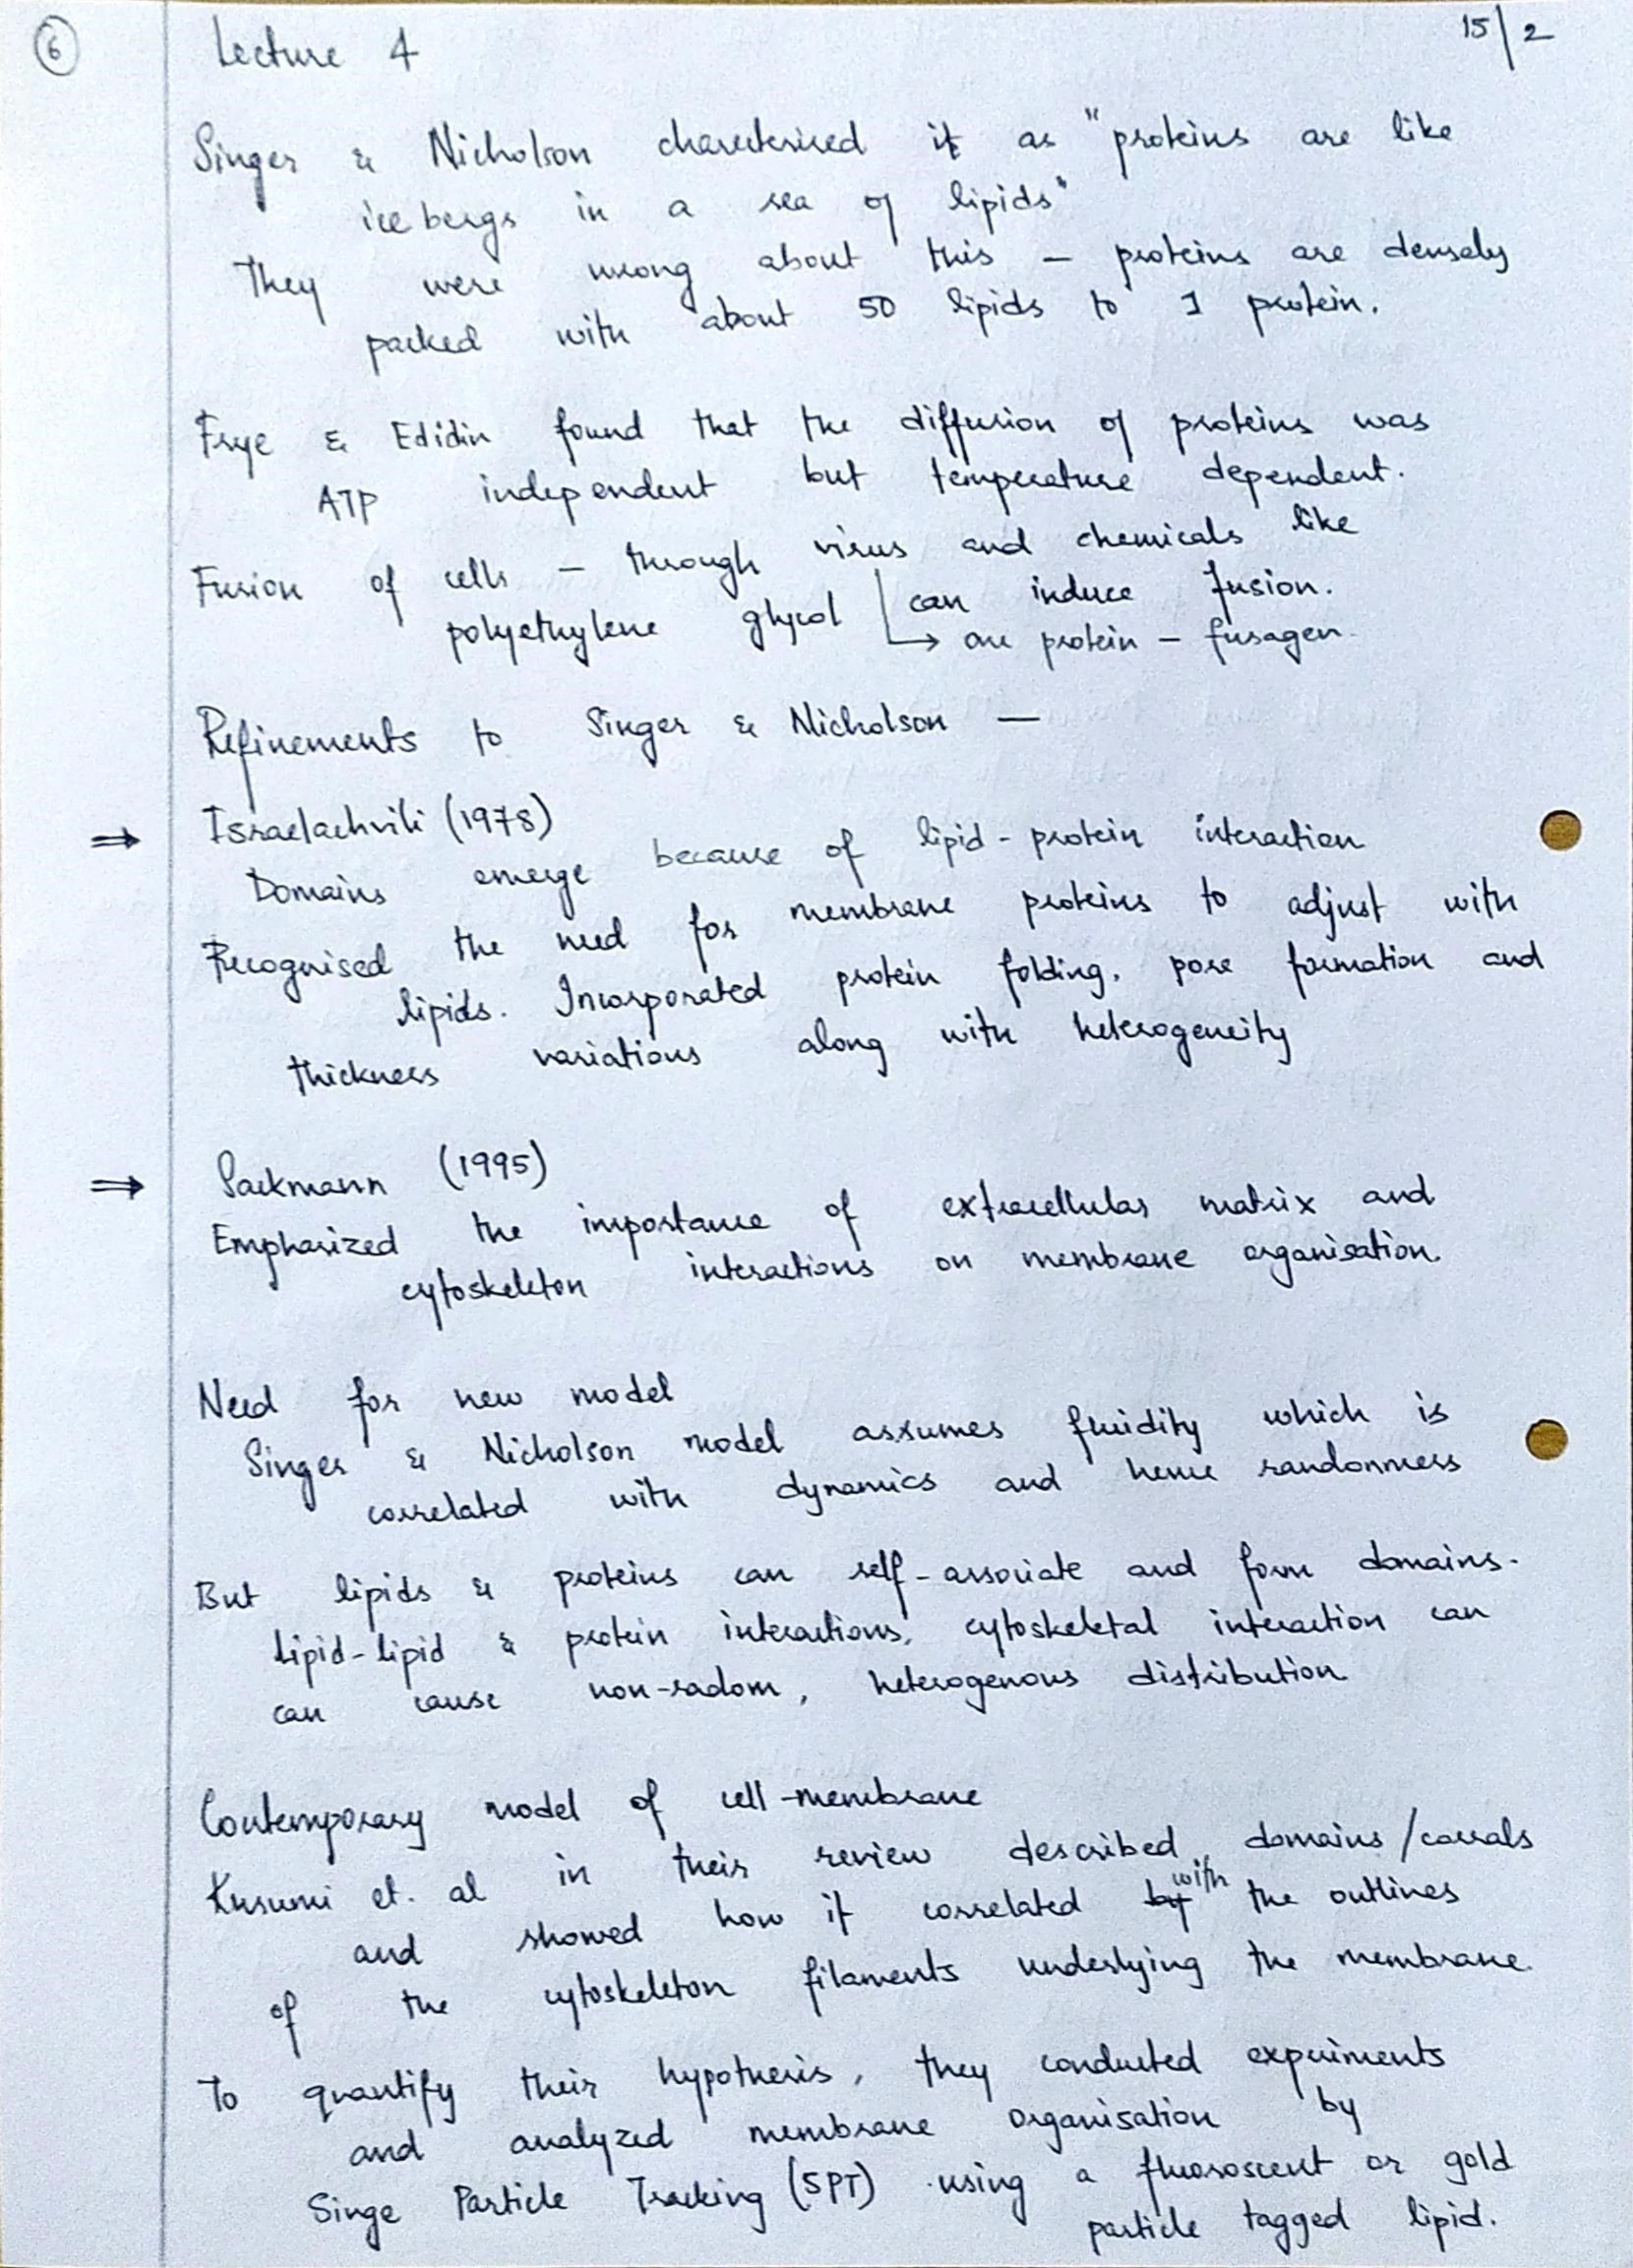 6
Lecture 4
15/2
Singer & Nicholson charecterised it as "proteins are like
ice bergs in a sea of lipids"
They were wrong about this — proteins are densely
packed with about 50 lipids to 1 protein.
Frye & Edidin found that the diffusion of proteins was
ATP independent but temperature dependent.
Fusion of cells — through virus and chemicals like
polyethylene glycol can induce fusion.
→ one protein – fusagen
Refinements to Singer & Nicholson —
⇒ Israelachvili (1978)
Domains emerge because of lipid-protein interaction
Recognised the need for membrane proteins to adjust with
lipids. Incorporated protein folding, pore formation and
thickness variations along with heterogeneity
⇒ Sackmann (1995)
Emphasized the importance of extracellular matrix and
cytoskeleton interactions on membrane organisation.
Need for new model
Singer & Nicholson model assumes fluidity which is
correlated with dynamics and hence randomness
But lipids & proteins can self-associate and form domains.
Lipid-lipid & protein interactions, cytoskeletal interaction can
can cause non-radom, heterogenous distribution
Contemporary model of cell-membrane
Kusumi et. al in their review described domains/corrals
and showed how it correlated with the outlines
of the cytoskeleton filaments underlying the membrane.
To quantify their hypothesis, they conducted expriments
and analyzed membrane organisation by
Singe Particle Tracking (SPT) using a fluoroscent or gold
particle tagged lipid.